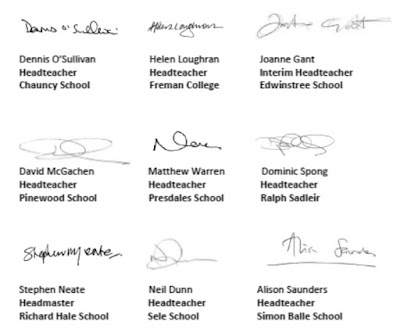 Dennis O'Sullivan
Dennis O'Sullivan
Headteacher
Chauncy School
Helen Loughran
Helen Loughran
Headteacher
Freman College
Joanne Gant
Interim Headteacher
Edwinstree School
David McGachen
Headteacher
Pinewood School
Matthew Warren
Headteacher
Presdales School
Dominic Spong
Headteacher
Ralph Sadleir
Stephen Neate
Stephen Neate
Headmaster
Richard Hale School
Neil Dunn
Headteacher
Sele School
Alison Saunders
Headteacher
Simon Balle School